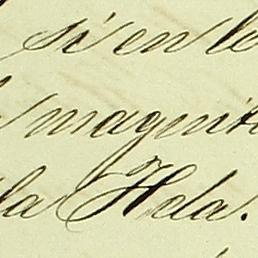 si en le
magnit
la Hda.